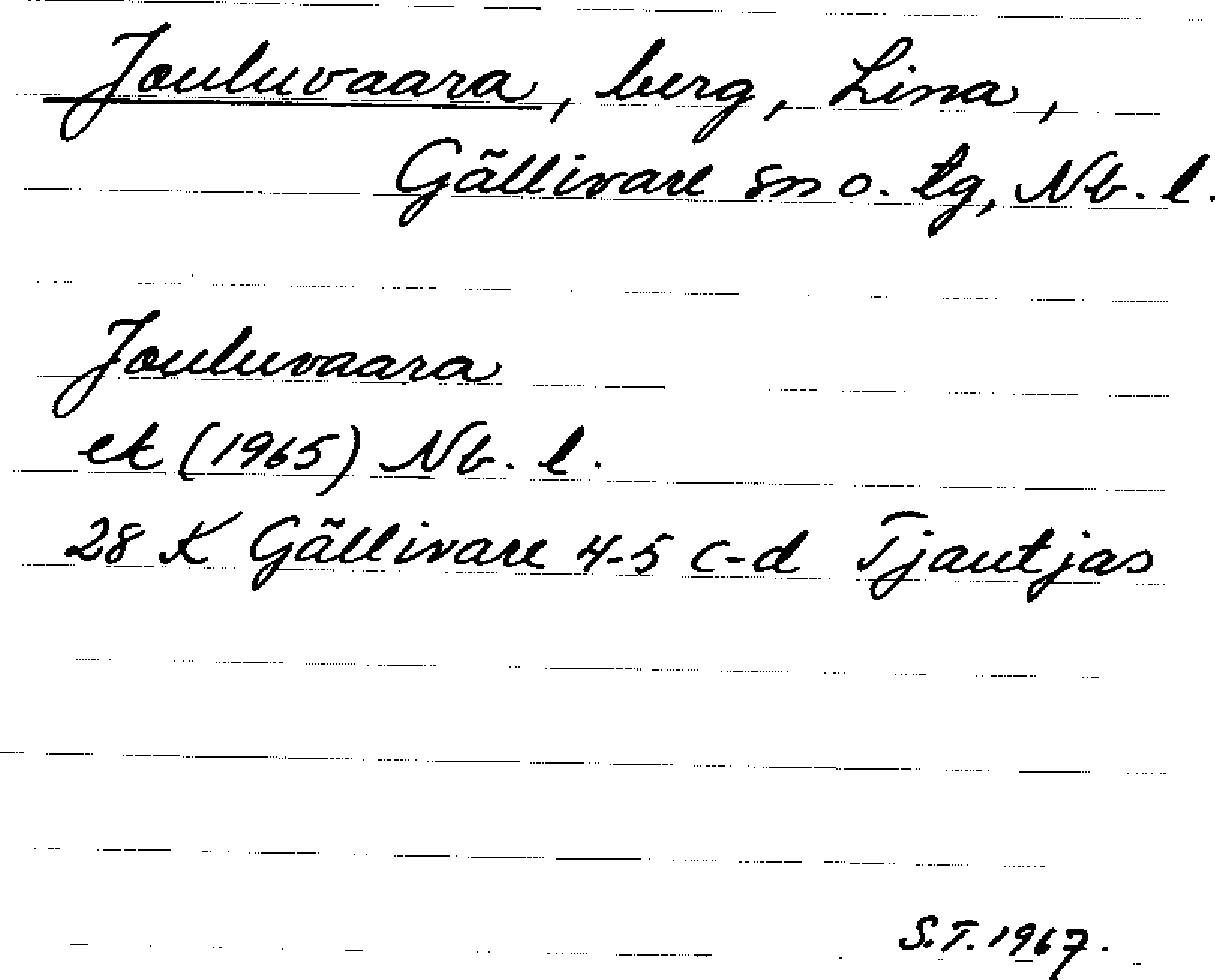 Jouluvaara, berg, Lina,
Gällivare sn o. tg, Nb. l.
Jouluvaara
ek (1965) Nb. l.
28 K Gällivare 4-5 c-d Tjautjas
S.T. 1967.